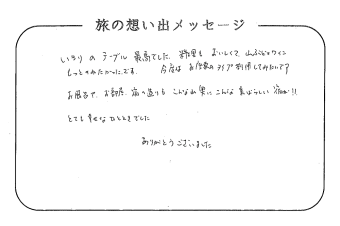 旅の想い出メッセージ
いろりのテーブル最高でした。料理もおいしくて、山ぶどうワイン
もっとのみたかったです。今度は お食事のタイプ利用してみたいです
お風呂で、お部屋、宿の造りも こんなお里にこんな素ばらしい宿が!!
とても幸せなひとときでした
ありがとうございました